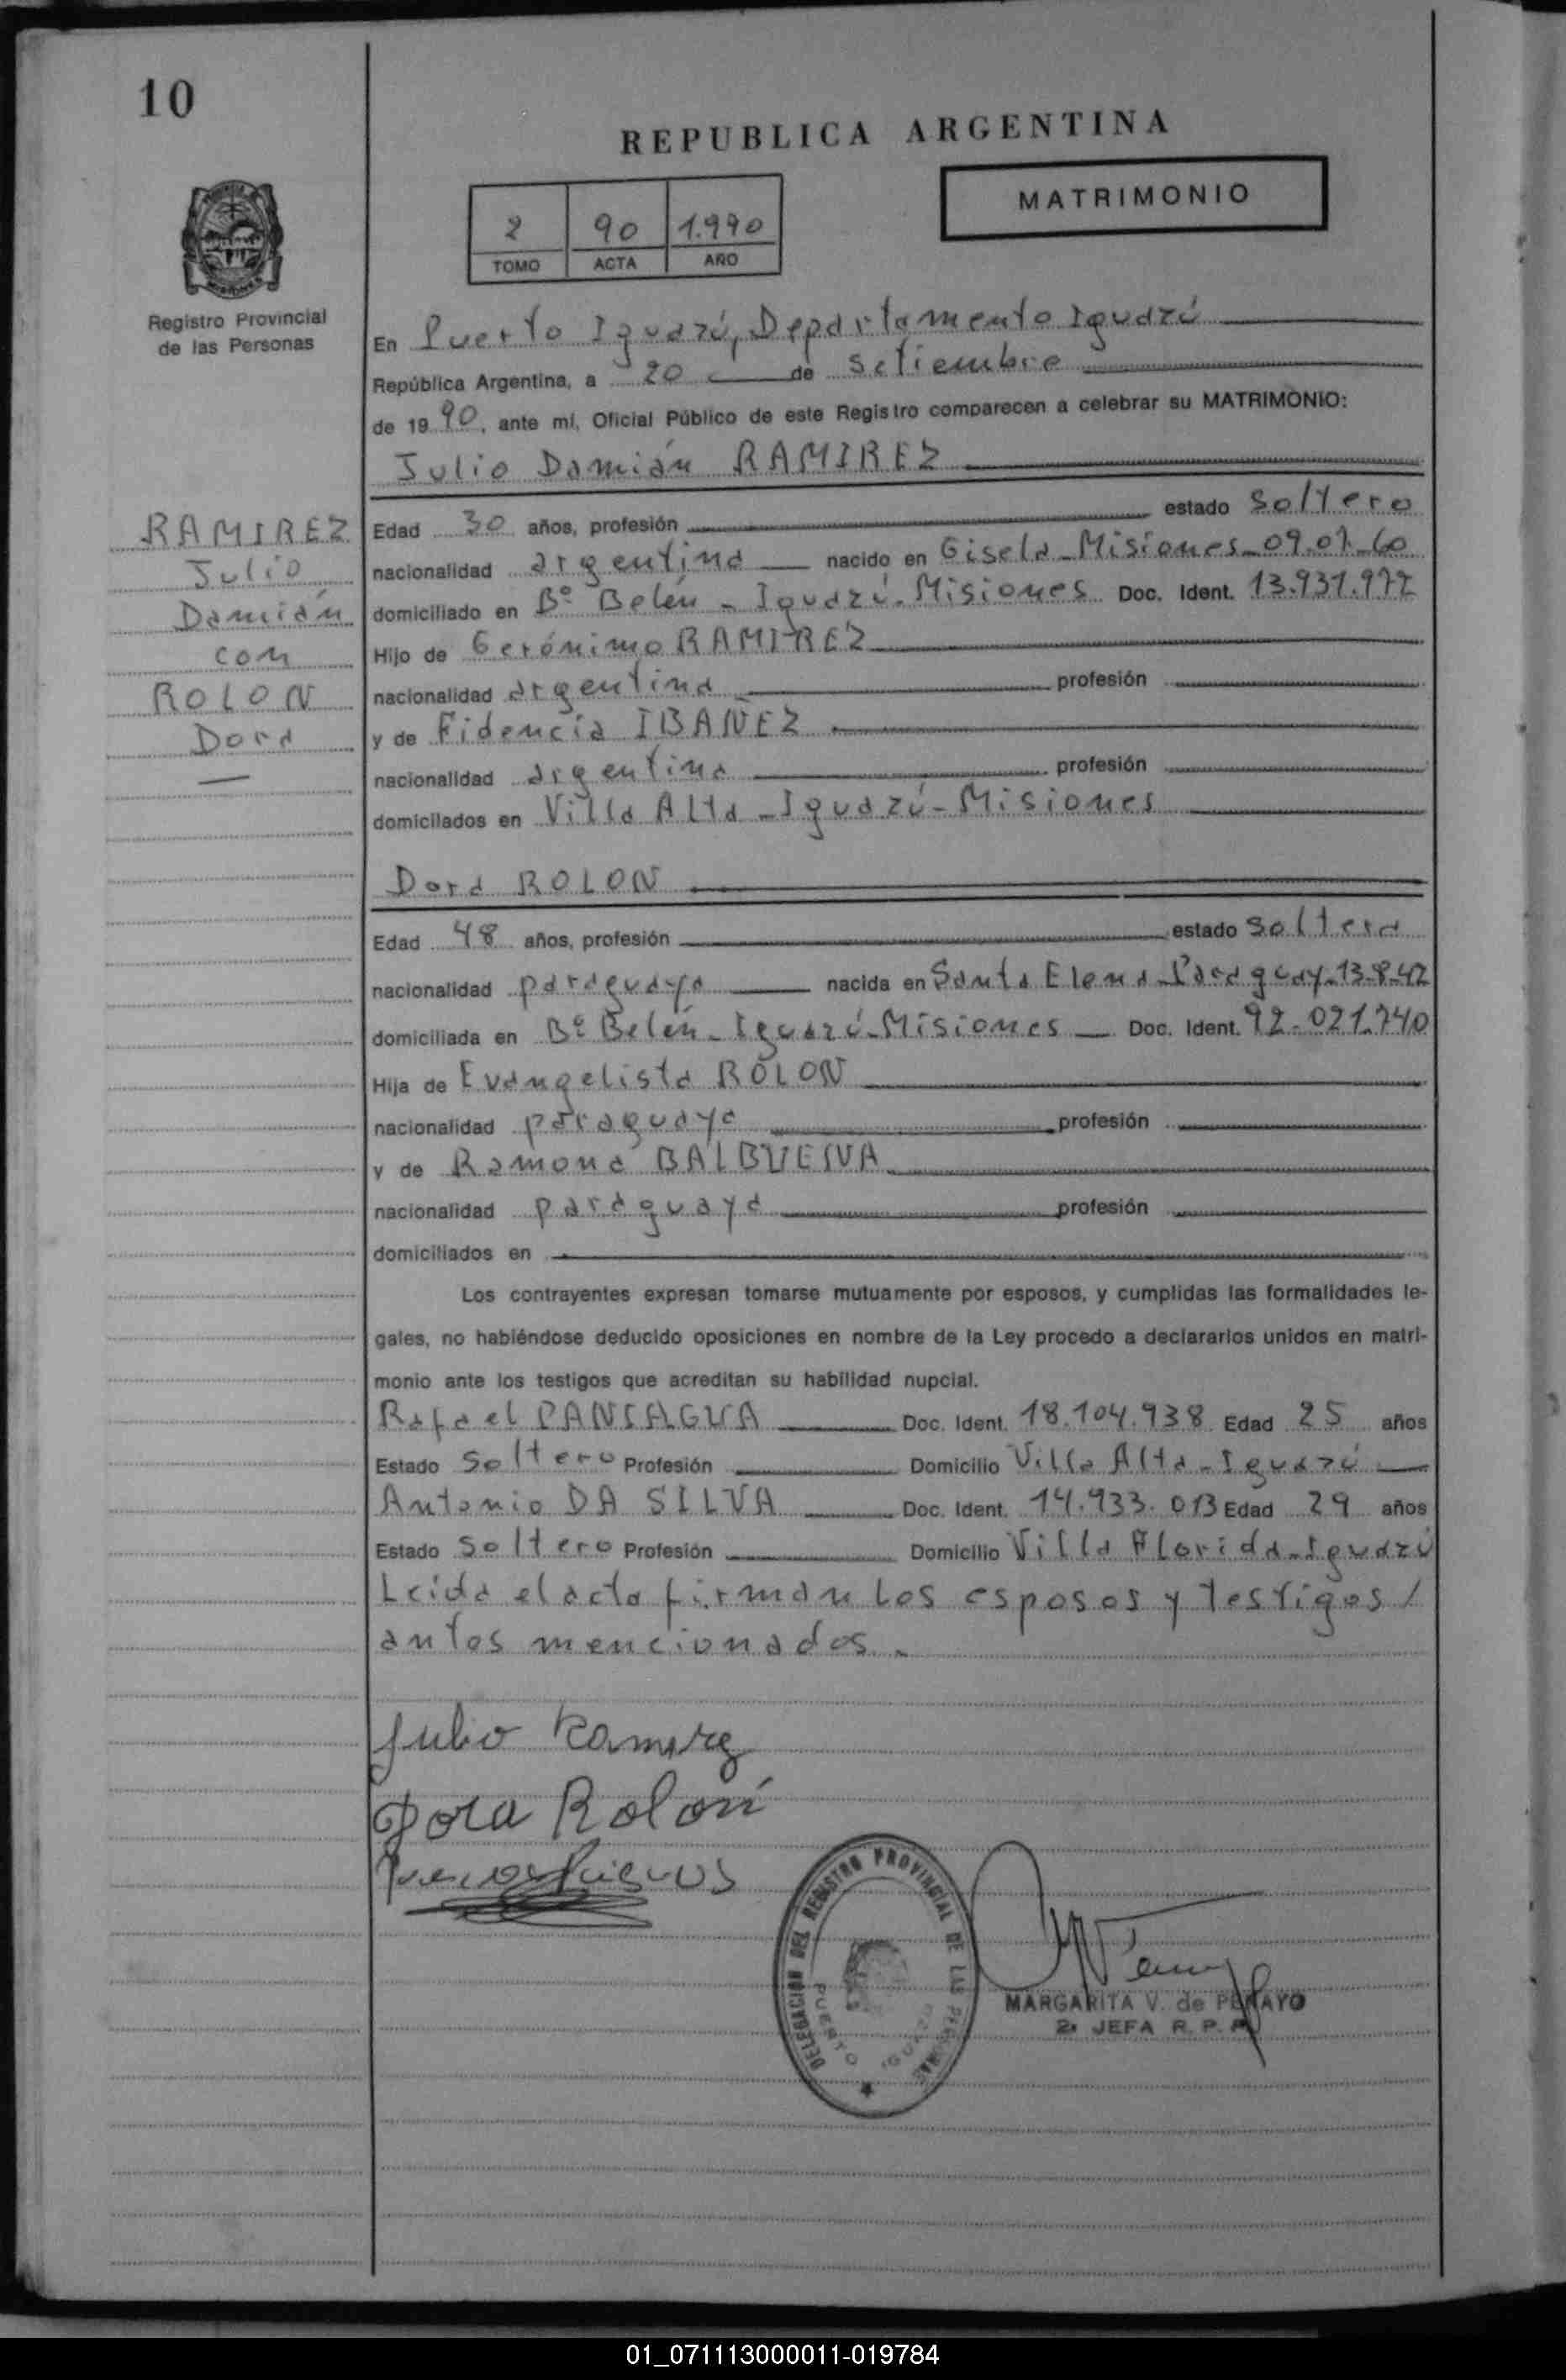 10
REPUBLICA ARGENTINA
MATRIMONIO
2 90 1.990
TOMO ACTA AÑO
Registro Provincial
de las Personas
En Puerto Iguazú, Departamento Iguazú
República Argentina, a 20 de setiembre
de 1990, ante mí, Oficial Público de este Registro comparecen a celebrar su MATRIMONIO:
Julio Damián RAMIREZ
RAMIREZ
Julio
Damián
con
ROLON
Dora
Edad 30 años, profesión estado soltero
nacionalidad argentina nacido en Gisela - Misiones - 09.07.60
domiciliado en Bº Belén - Iguazú - Misiones Doc. Ident. 13.937.977
Hijo de Gerónimo RAMIREZ
nacionalidad argentina profesión
y de Fidencia IBAÑEZ
nacionalidad argentina profesión
domiciliados en Villa Alta - Iguazú - Misiones
Dora ROLON
Edad 48 años, profesión estado soltera
nacionalidad paraguaya nacida en Santa Elena - Paraguay - 13-8-42
domiciliada en Bº Belén - Iguazú - Misiones Doc. Ident. 92.021.740
Hija de Evangelista ROLON
nacionalidad paraguaya profesión
y de Ramona BALBUENA
nacionalidad paraguaya profesión
domiciliados en
Los contrayentes expresan tomarse mutuamente por esposos, y cumplidas las formalidades le-
gales, no habiéndose deducido oposiciones en nombre de la Ley procedo a declararlos unidos en matri-
monio ante los testigos que acreditan su habilidad nupcial.
Rafael PANIAGUA Doc. Ident. 18.104.938 Edad 25 años
Estado soltero Profesión Domicilio Villa Alta - Iguazú
Antonio DA SILVA Doc. Ident. 14.933.013 Edad 29 años
Estado soltero Profesión Domicilio Villa Florida - Iguazú
Leida el acta firman los esposos y testigos /
antes mencionados.
Julio Ramirez
Dora Rolon
DELEGACION DEL REGISTRO PROVINCIAL DE LAS PERSONAS
PUERTO IGUAZU
MARGARITA V. de PENAYO
2ª JEFA R. P. P.
01_071113000011-019784